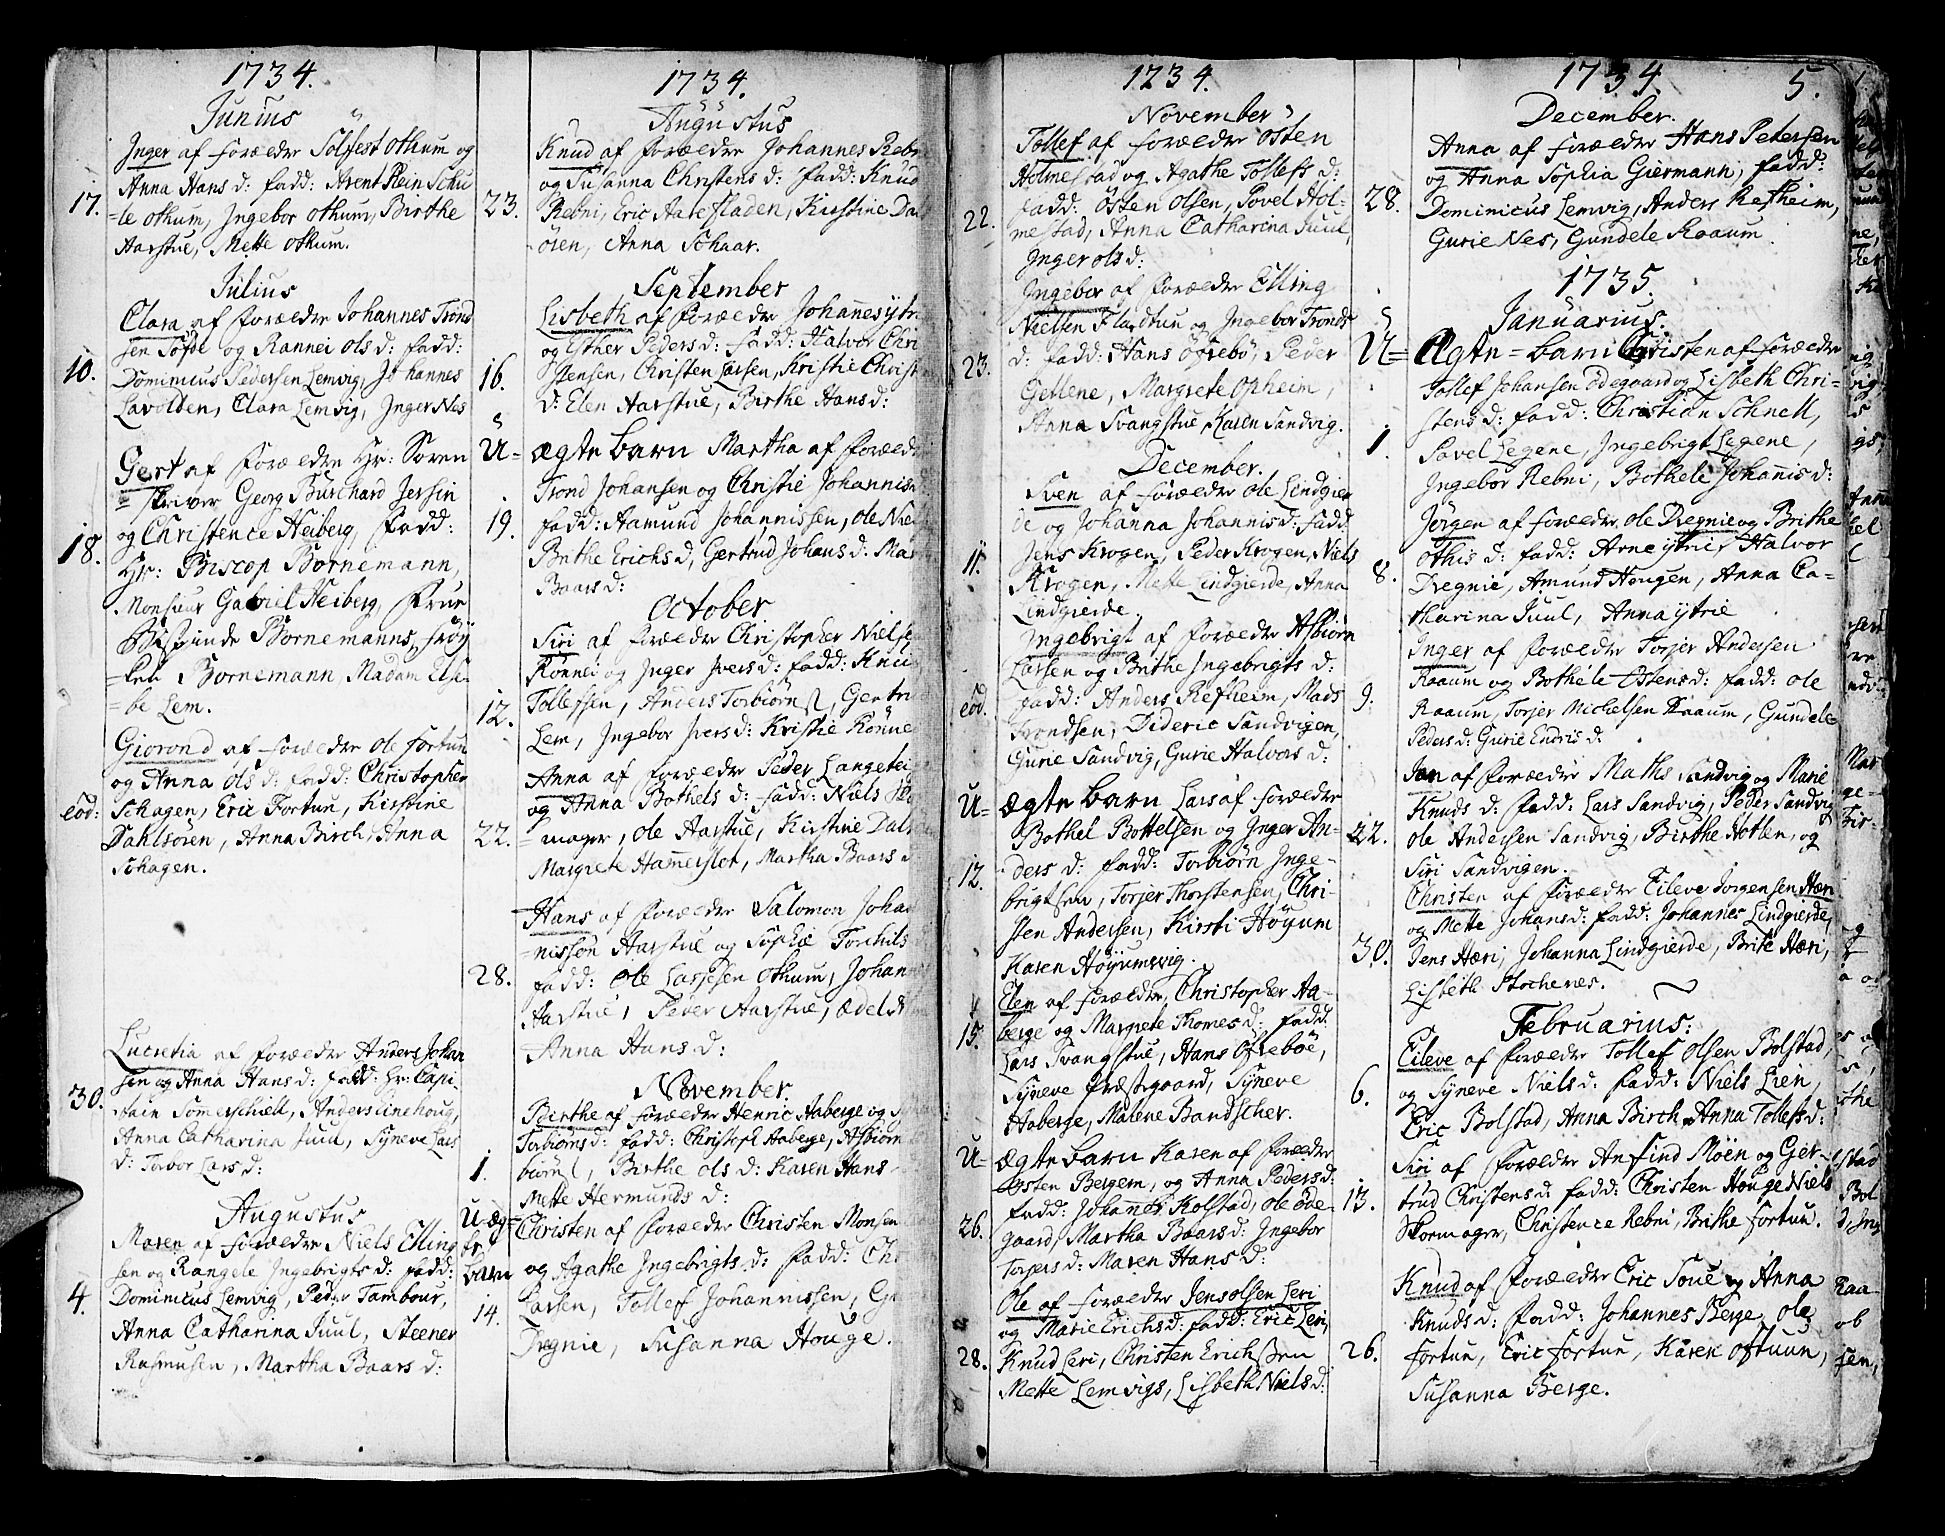 1734.
Junius
Inger af forældre Solfest othum og
Anna Hans d: fadd: Arent Rein Schu
17. =le othum, Ingebor othum, Birthe
Aarstue, Mette othum.
Julius
Clara af forældre Johannes Trond
sen Sofde og Rannei ols d: fadd:
10. Dominicus Pedersen Lemvig, Johannes
Lavolden, Clara Lemvig, Inger Nes
Gert af forældre Hr: Soren
skriver Georg Burchard Jersin
og Christence Heiberg, fadd:
18. Hr: Biscop Bornemann,
Monsieur Gabriel Heiberg, Frue
Bornemanns, frøy
=ken Bornemann, Madam Else-
=be Lem.
Giorond af forældre ole fortun
og Anna ols d: fadd: Christopher
eod: Schagen, Eric Fortun, Kirstine
Dahlsören, Anna Birch, Anna
Schagen.
Lucretia af forældre Anders Johan
sen og Anna Hans d: fadd: Hr: Capi
30. tain Somerschielt, Anders Linehoug,
Anna Catharina Juul, Syneve Lars
d: Torbor Lars d:
Augustus
Maren af forældre Niels Elling
sen og Rangele Ingebrigts d: fadd:
4. Dominicus Lemvig, Peder Tambour,
Anna Catharina Juul, Steener
Rasmusen, Martha Baars d:
1734.
Augustus
Knud af forældre Johannes Rebn
og Susanna Christens d: fadd: Knud
23. Rebni, Eric Aarefladen, Kirstine Dals
ören, Anna Schaar.
September
Lisbeth af forældre Johanes ytri
og Esther Peders d: fadd: Halvor Chri
16. stensen, Christen Larsen, Kristie Christ
d: Elen Aarstue, Birthe Hans d:
U= ægte barn Martha af foræld
Trond Johansen og Christie Johannis
19. fadd: Aamund Johannissen, ole Niel
Brithe Erichs d, Gertrud Johans d: Mar
Baars d:
October
Siri af forældre Christopher Nielse
Rönnei og Inger Ivers d: fadd: Knu
12. Tollefsen, Anders Torbiörns, Gertru
Lem, Ingebor Ivers d: Kristie Rönne
Anna af forældre Peder Langetei
og Anna Bothels d: fadd: Niels Sko
22. =mager, ole Aarstue, Kirstine Dals
Margrete Hamerslot, Martha Baars d
Hans af forældre Salomon Johan
=nisson Aarstue og Sophie Torchils
28. fadd: ole Larssen othum, Johann
Aarstue, Peder Aarstue, Ædel
Anna Hans d:
November.
Birthe af forældre Henric Aaberge og
Torbiörns d: fadd: Christoph Aaberge, Asbiörn
1. biörns, Birthe ols d: Karen Hans
Mette Hermunds d:
U-æg= Christen af forældre Christen Monsen
te og Agathe Ingebrigts d: fadd: Ch
barn
14. Larsen, Tollef Johannissen, G
Dregnie, Susanna Houge.
1734.
November
Tollef af forældre östen
Holmestad og Agathe Tollefs d:
22. fadd: östen olsen, Povel Hol-
mestad, Anna Catharina Juul,
Inger ols d:
Ingebor af forældre Elling
Nielsen Flahtun og Ingebor Tronds
23. d: fadd: Hans öfrebö, Peder
Getlene, Margrete opheim,
Anna Svangstue, Karen Sandvig.
December.
Sven af forældre ole Lindgier
de og Johanna Johannis d: fadd
11. Jens Krogen, Peder Krogen, Niels
Krogen, Mette Lindgierde, Anna
Lindgierde.
Ingebrigt af forældre Asbiörn
Larsen og Brithe Ingebrigts d:
eod. fadd: Anders Refheim, Mads
Trondsen, Dideric Sandvigen,
Gurie Sandvig, Gurie Halvors d:
U= ægte barn Lars af forældre
Bothel Bottelsen og Inger An-
12. ders d: fadd: Torbiörn Inge-
brigtsen, Torjer Thorstensen, Chri-
sten Andersen, Kirsti Höyum
Karen Höyumsvig.
Elen af forældre Christopher Aa-
15. berge og Margrete Thomes d: fadd.
Lars Svangstue, Hans öfreboe,
Syneve Præstegaard, Syneve
Aaberge, Malene Bandscher.
U= ægte barn Karen af forældre
östen Bergem, og Anna Peders d:
26. fadd: Johannes Kolstad, ole öde-
gaard, Martha Baars d: Ingebor
Torjers d: Maren Hans d:
Ole af forældre Jens olsen Leri
og Marie Erichs d: fadd: Eric Leri,
28. Knud Leri, Christen Erichssen
Mette Lemvigs, Lisbeth Niels d:
1734. 5.
December.
Anna af forældre Hans Petersen
og Anna Sophia Giermann, fadd:
28. Dominicus Lemvig, Anders Refheim,
Gurie Nes, Gundele Raaum
1735.
Januarius.
U= Ægte=barn Christen af forældre
Tollef Johansen ödegaard og Lisbeth Chri-
stens d: fadd: Christian Schnell,
1. Povel Legene, Ingebrigt Legene,
Ingebor Rebni, Bothele Johannis d:
Jörgen af forældre ole Dregnie og Brithe
othis d: fadd: Arne ytrie, Halvor
8. Dregnie, Amund Hougen, Anna Ca=
tharina Juul, Anna ytrie
Inger af forældre Torjer Andersen
Raaum og Bothele östens d: fadd: ole
9. Raaum, Torjer Michelsen Raaum, Gundele
Peders d: Gurie Endris d.
Jan af forældre Maths Sandvig og Marie
Knuds d: fadd: Lars Sandvig, Peder Sandvig
22. ole Andersen Sandvig, Birthe Hotlen, og
Siri Sandvigen.
Christen af forældre Eileve Jorgensen Hæri
og Mette Johans d: fadd: Johannes Lindgierde,
30. Jens Hæri, Johanna Lindgierde, Brite Hæri,
Lisbeth Stochenes.
Februarius:
Eileve af forældre Tollef olsen Bolstad,
og Syneve Niels d: fadd: Niels Lien,
6. Eric Bolstad, Anna Birch, Anna Tollefs d:
Siri af forældre Anfind Möen og Ger-
13. trud Christens d: fadd: Christen Houge, Niels
Skomager, Christence Rebni, Brithe fortun.
Knud af forældre Eric Soue og Anna
Knuds d: fadd: Johannes Berge, ole
26. fortun, Eric fortun, Karen oftuun,
Susanna Berge.